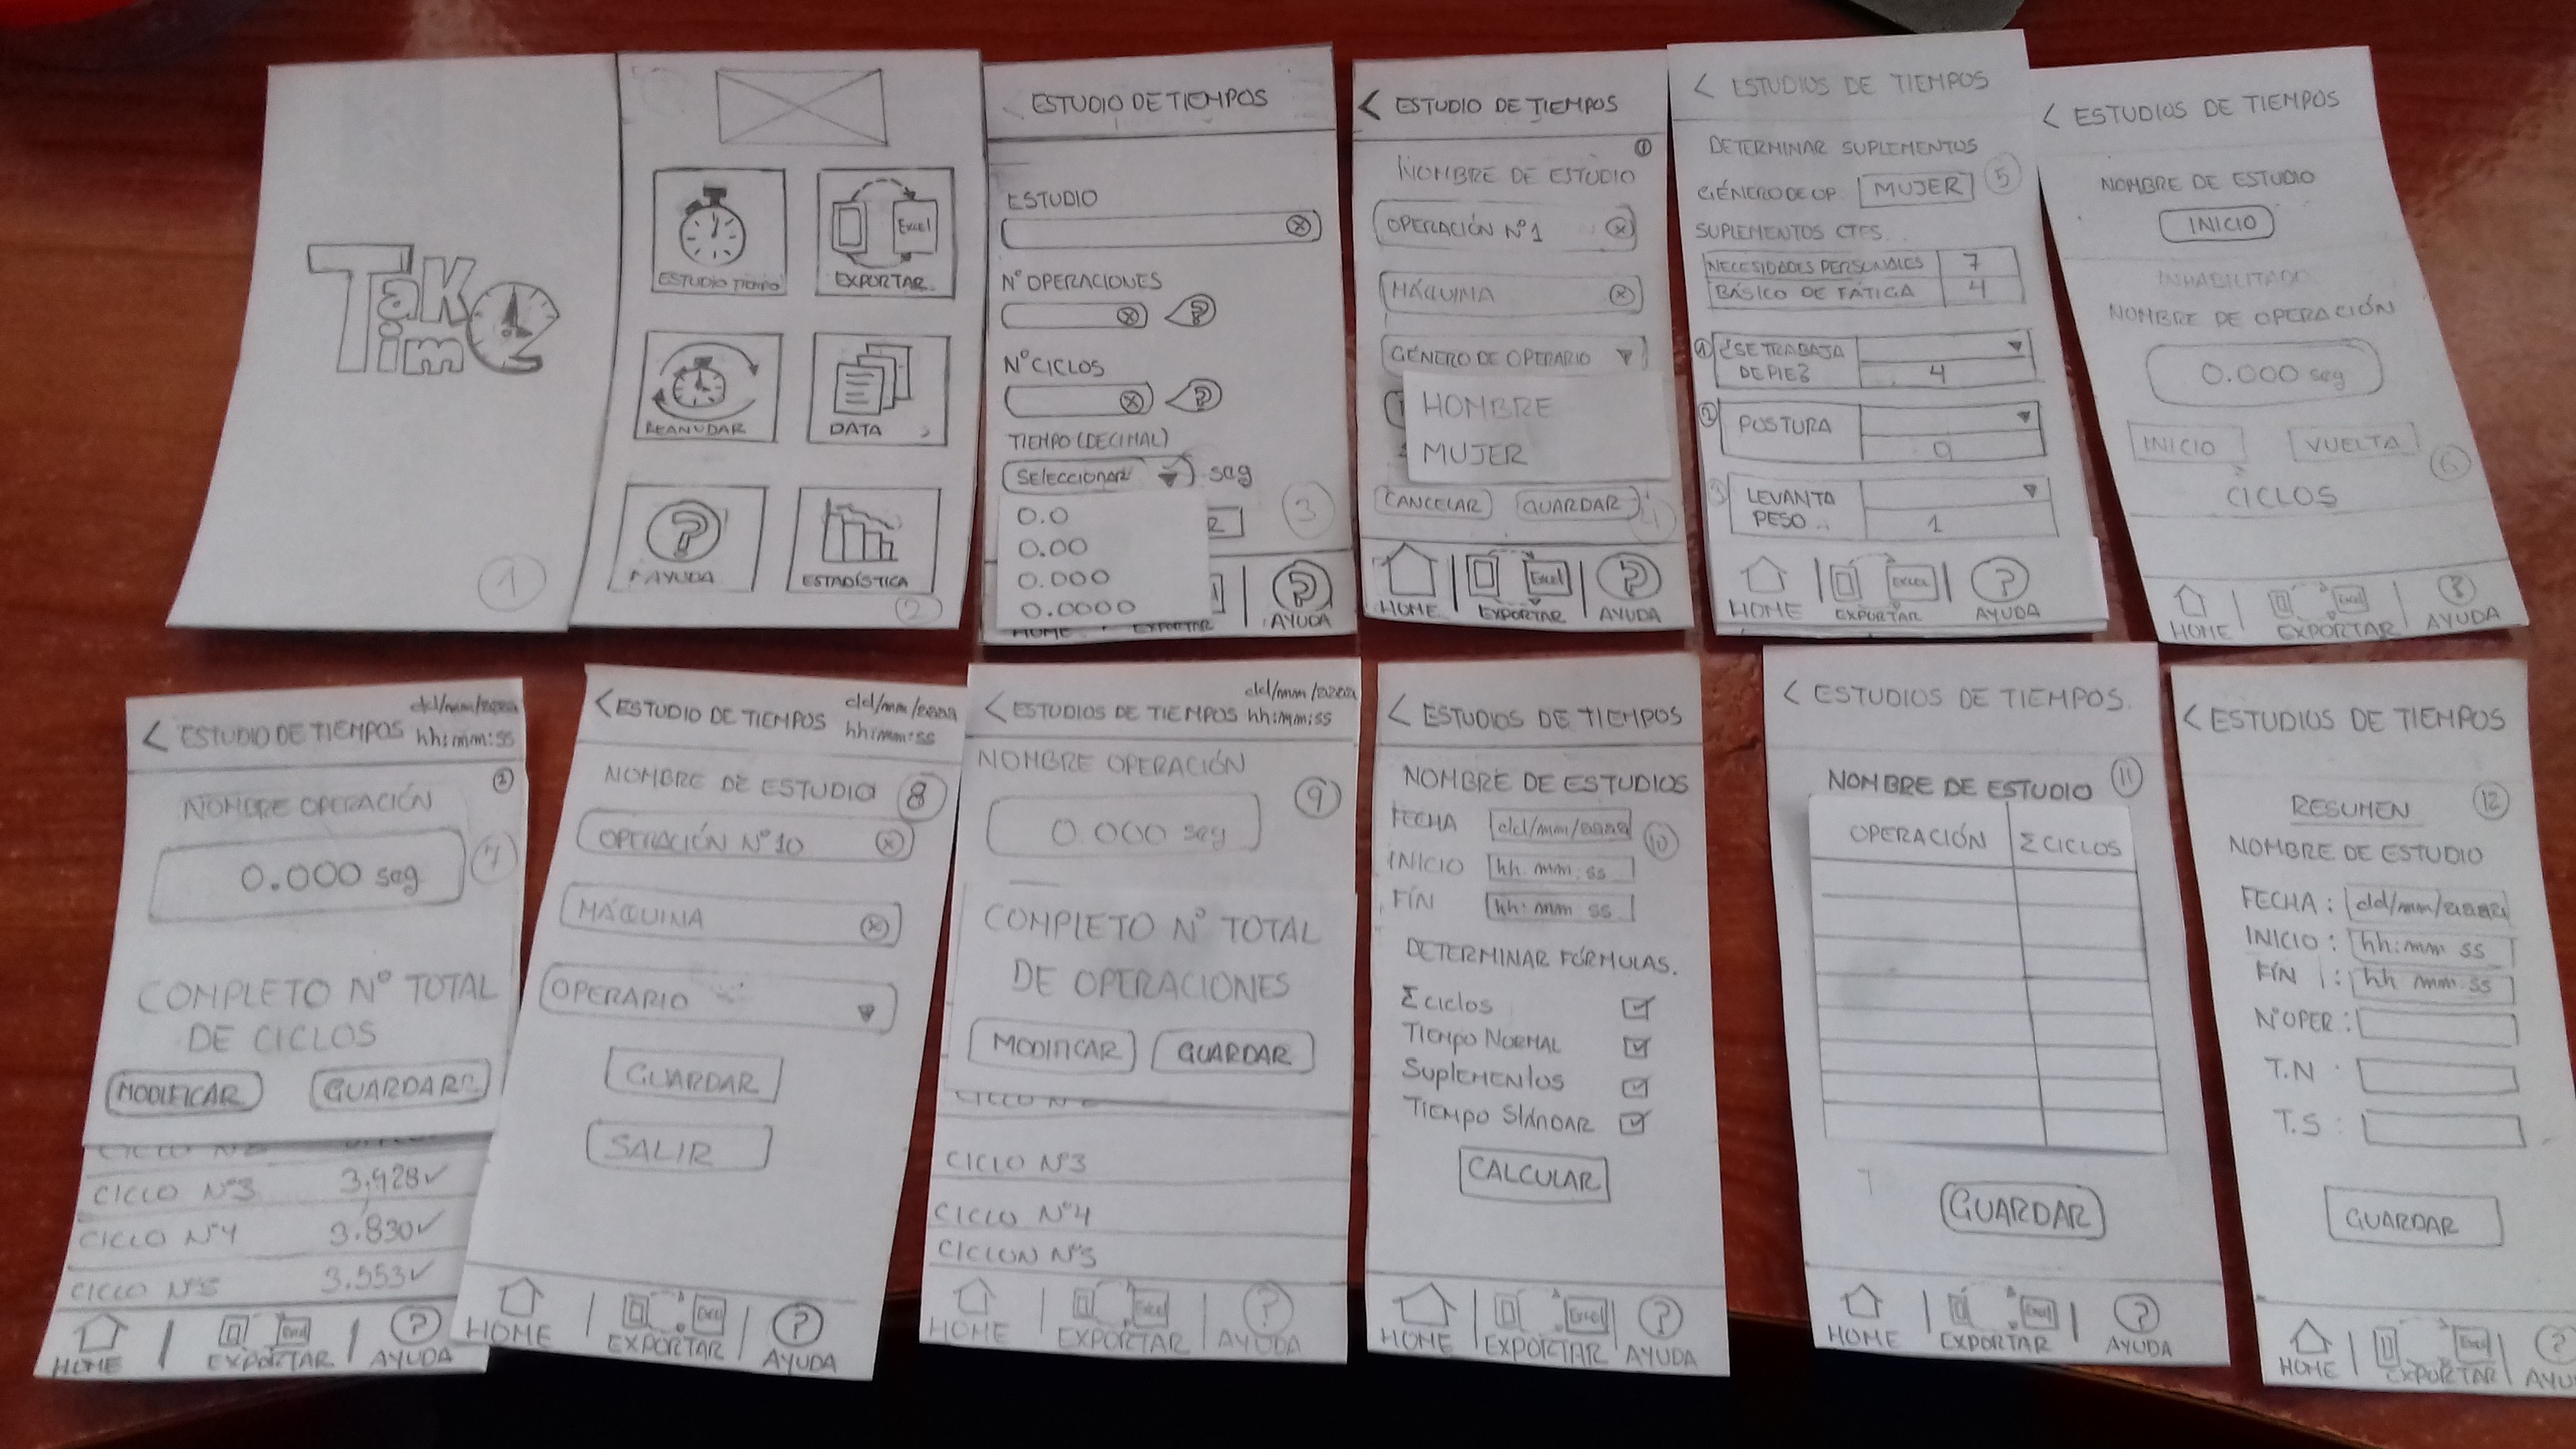 Take
Time
1
ESTUDIO TIEMPO
Excel
EXPORTAR
REANUDAR
DATA
?
AYUDA
ESTADÍSTICA
2
ESTUDIO DE TIEMPOS
ESTUDIO
Nº OPERACIONES
?
Nº CICLOS
?
TIEMPO (DECIMAL)
SELECCIONAR seg
0.0
0.00
0.000
0.0000
R
3
HOME EXPORTAR AYUDA
< ESTUDIO DE TIEMPOS
1
NOMBRE DE ESTUDIO
OPERACIÓN Nº1
MÁQUINA
GÉNERO DE OPERARIO
HOMBRE
MUJER
CANCELAR GUARDAR
4
Excel ?
HOME EXPORTAR AYUDA
< ESTUDIOS DE TIEMPOS
DETERMINAR SUPLEMENTOS
GÉNERO DE OP. MUJER
5
SUPLEMENTOS CTES.
NECESIDADES PERSONALES 7
BÁSICO DE FÁTIGA 4
1 ¿SE TRABAJA
DE PIE?
4
2 POSTURA
0
3 LEVANTA
PESO ..
1
Excel ?
HOME EXPORTAR AYUDA
< ESTUDIOS DE TIEMPOS
NOMBRE DE ESTUDIO
INICIO
INHABILITADO
NOMBRE DE OPERACIÓN
0.000 seg
INICIO VUELTA
6
CICLOS
Excel ?
HOME EXPORTAR AYUDA
< ESTUDIO DE TIEMPOS dd/mm/aaaa
hh:mm:ss
2
NOMBRE OPERACIÓN
0.000 seg
7
COMPLETO Nº TOTAL
DE CICLOS
MODIFICAR GUARDAR
CICLO Nº3 3.928✓
CICLO Nº4 3.830✓
CICLO Nº5 3.553✓
Excel ?
HOME EXPORTAR AYUDA
< ESTUDIO DE TIEMPOS dd/mm/aaaa
hh:mm:ss
NOMBRE DE ESTUDIO
8
OPERACIÓN Nº10
MÁQUINA
OPERARIO
GUARDAR
SALIR
Excel ?
HOME EXPORTAR AYUDA
< ESTUDIOS DE TIEMPOS dd/mm/aaaa
hh:mm:ss
NOMBRE OPERACIÓN
9
0.000 seg
COMPLETO Nº TOTAL
DE OPERACIONES
MODIFICAR GUARDAR
CICLO Nº3
CICLO Nº4
CICLON Nº5
Excel ?
HOME EXPORTAR AYUDA
< ESTUDIOS DE TIEMPOS
NOMBRE DE ESTUDIOS
FECHA dd/mm/aaaa
10
INICIO hh:mm:ss
FÍN hh:mm ss
DETERMINAR FÓRMULAS.
Σ ciclos
TIEMPO NORMAL
SUPLEMENTOS
TIEMPO STÁNDAR
CALCULAR
Excel ?
HOME EXPORTAR AYUDA
< ESTUDIOS DE TIEMPOS.
NOMBRE DE ESTUDIO
11
OPERACIÓN Σ CICLOS
GUARDAR
Excel ?
HOME EXPORTAR AYUDA
< ESTUDIOS DE TIEMPOS
RESUMEN
12
NOMBRE DE ESTUDIO
FECHA : dd/mm/aaaa
INICIO : hh:mm ss
FÍN : hh mm:ss
NºOPER :
T.N :
T.S :
GUARDAR
Excel ?
HOME EXPORTAR AYU